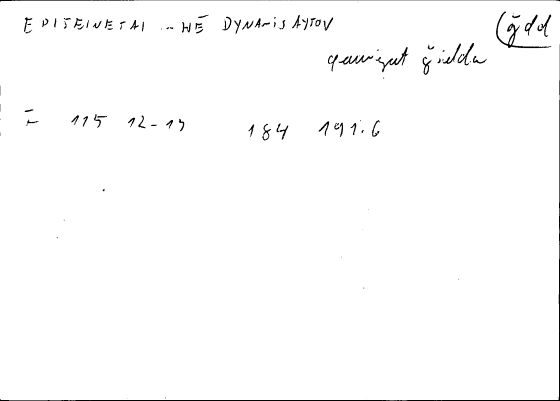 EPITEINETAI .. HĒ DYNAMIS AYTOV
(ǧdd
quwwat ǧidda
F 115 12-13 184 191.6